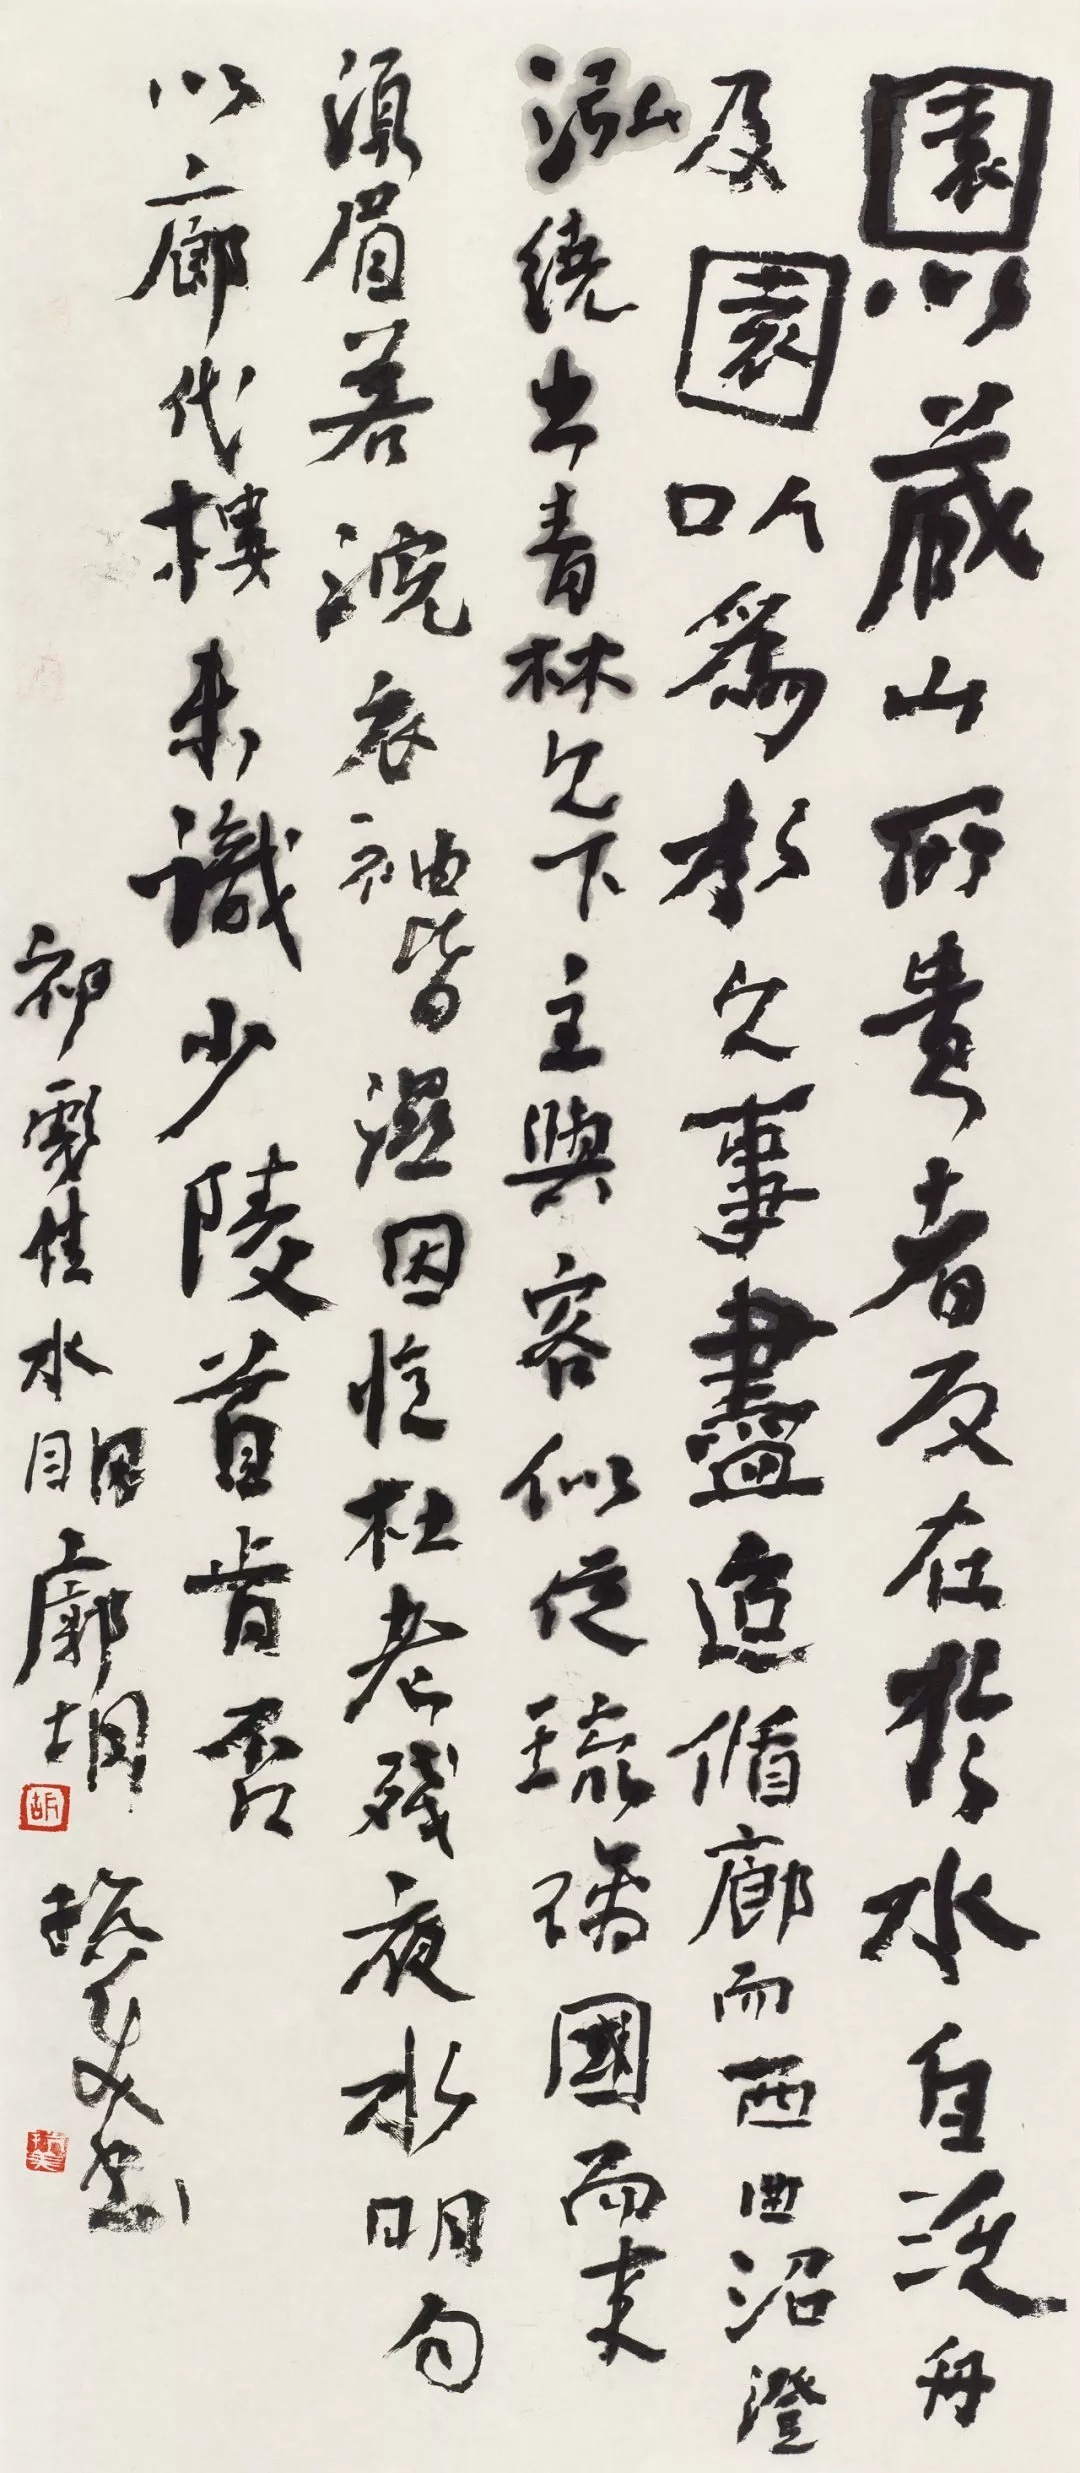 園以藏山所貴者反在於水自泛舟
及園以爲於之事盡迨循廊而西曲沼澄
泓繞出青林之下主與客似從琉璃國而來
須眉若浣衣袖皆濕因憶杜老殘夜水明句
以廊代樓未識少陵首肯否
祁彪佳水明廊胡抗美書
胡
抗美